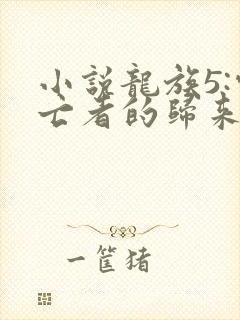 小說龍族5:
亡者的歸來
一筐豬